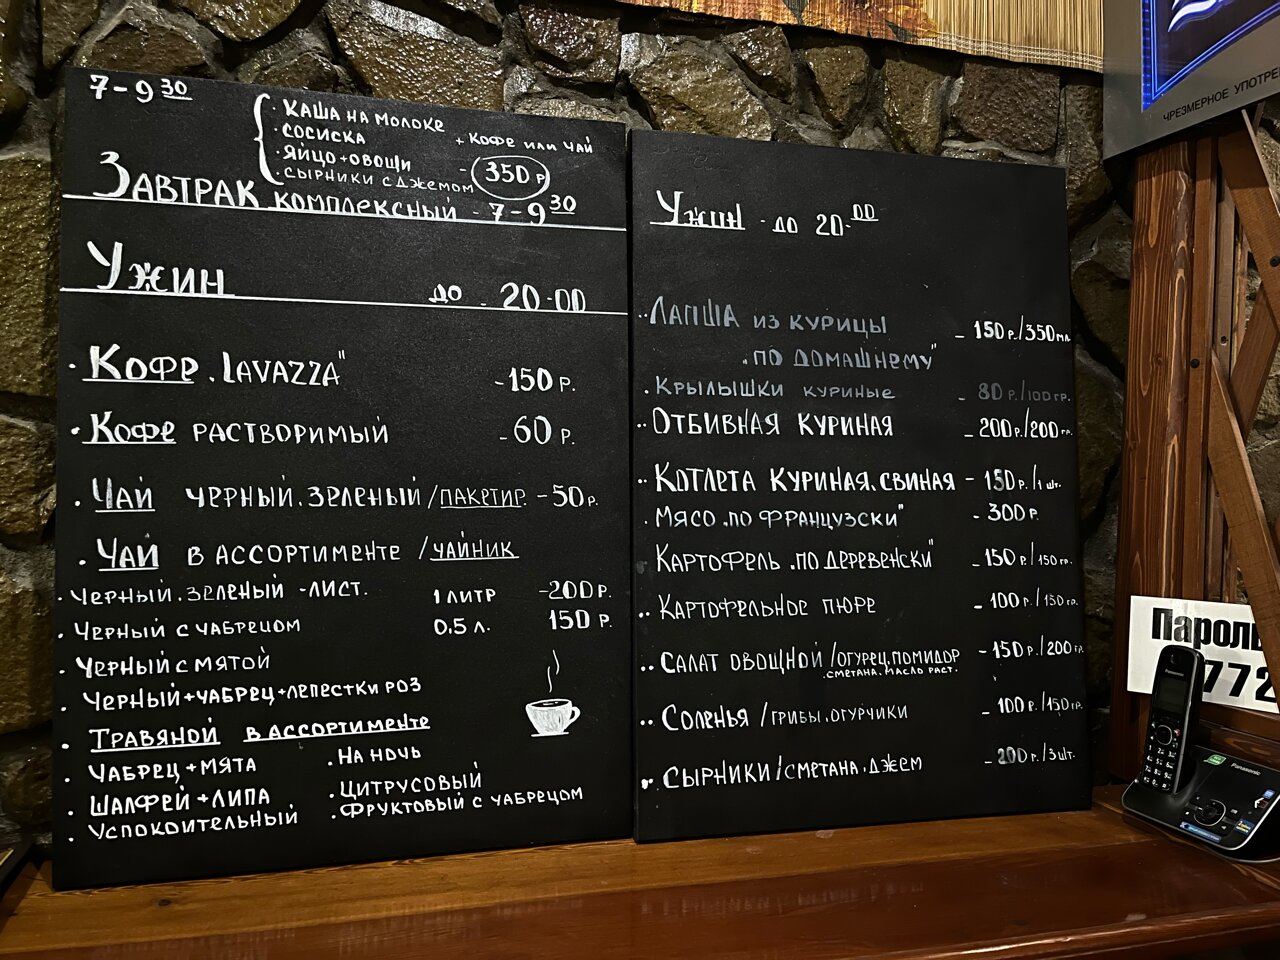 7-9 30
· КАША НА МОЛОКЕ
· СОСИСКА + КОФЕ ИЛИ ЧАЙ
· ЯЙЦО+ОВОЩИ - 350 Р
· СЫРНИКИ С ДЖЕМОМ
ЗАВТРАК КОМПЛЕКСНЫЙ - 7-9 30
УЖИН ДО - 20-00
· КОФЕ „LAVAZZA" -150 Р.
· КОФЕ РАСТВОРИМЫЙ -60 Р.
· ЧАЙ ЧЕРНЫЙ.ЗЕЛЕНЫЙ/ПАКЕТИР. -50 Р.
· ЧАЙ В АССОРТИМЕНТЕ /ЧАЙНИК
· ЧЕРНЫЙ.ЗЕЛЕНЫЙ -ЛИСТ. 1 ЛИТР -200 Р.
· ЧЕРНЫЙ С ЧАБРЕЦОМ 0,5 Л. 150 Р.
· ЧЕРНЫЙ С МЯТОЙ
· ЧЕРНЫЙ+ЧАБРЕЦ+ЛЕПЕСТКИ РОЗ
· ТРАВЯНОЙ В АССОРТИМЕНТЕ
· ЧАБРЕЦ+МЯТА · НА НОЧЬ
· ШАЛФЕЙ+ЛИПА · ЦИТРУСОВЫЙ
· УСПОКОИТЕЛЬНЫЙ · ФРУКТОВЫЙ С ЧАБРЕЦОМ
УЖИН - ДО 20-00
·· ЛАПША ИЗ КУРИЦЫ - 150 Р./350 МЛ
„ПО ДОМАШНЕМУ"
· КРЫЛЫШКИ КУРИНЫЕ - 80 Р./100 ГР.
·· ОТБИВНАЯ КУРИНАЯ - 200 Р./200 ГР.
·· КОТЛЕТА КУРИНАЯ.СВИНАЯ - 150 Р./1 ШТ.
· МЯСО „ПО ФРАНЦУЗСКИ" - 300 Р.
КАРТОФЕЛЬ „ПО ДЕРЕВЕНСКИ" - 150 Р./150 ГР.
·· КАРТОФЕЛЬНОЕ ПЮРЕ - 100 Р./150 ГР.
·· САЛАТ ОВОЩНОЙ/ОГУРЕЦ.ПОМИДОР - 150 Р./200 ГР.
.СМЕТАНА.МАСЛО РАСТ.
·· СОЛЕНЬЯ/ГРИБЫ.ОГУРЧИКИ - 100 Р./150 ГР.
· СЫРНИКИ/СМЕТАНА.ДЖЕМ - 200 Р./3 ШТ.
ЧРЕЗМЕРНОЕ УПОТРЕ
Пароль
772
Panasonic
Panasonic